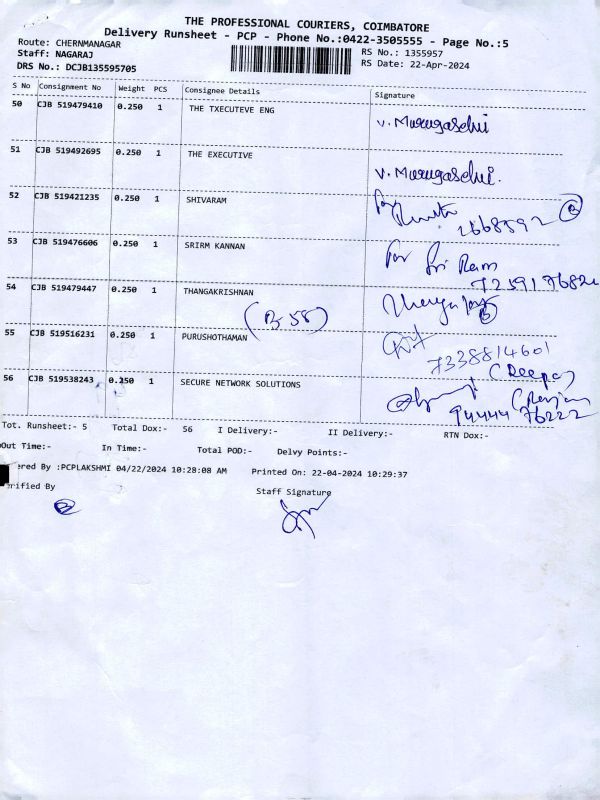 THE PROFESSIONAL COURIERS, COIMBATORE
Delivery Runsheet - PCP - Phone No.:0422-3505555 - Page No.:5
Route: CHERNMANAGAR
RS No.: 1355957
Staff: NAGARAJ
RS Date: 22-Apr-2024
DRS No.: DCJB135595705
S No Consignment No Weight PCS Consignee Details Signature
50 CJB 519479410 0.250 1 THE TXECUTEVE ENG
V. Murugaselvi
51 CJB 519492695 0.250 1 THE EXECUTIVE
V. Murugaselvi.
52 CJB 519421235 0.250 1 SHIVARAM
53 CJB 519476606 0.250 1 SRIRM KANNAN
For Sri Ram
54 CJB 519479447 0.250 1 THANGAKRISHNAN
(B-58)
55 CJB 519516231 0.250 1 PURUSHOTHAMAN
7338814601
(Deepa)
56 CJB 519538243 0.250 1 SECURE NETWORK SOLUTIONS
94444 76222
Tot. Runsheet:- 5 Total Dox:- 56 I Delivery:- II Delivery:- RTN Dox:-
Out Time:- In Time:- Total POD:- Delvy Points:-
ered By :PCPLAKSHMI 04/22/2024 10:28:08 AM Printed On: 22-04-2024 10:29:37
erified By
Staff Signature